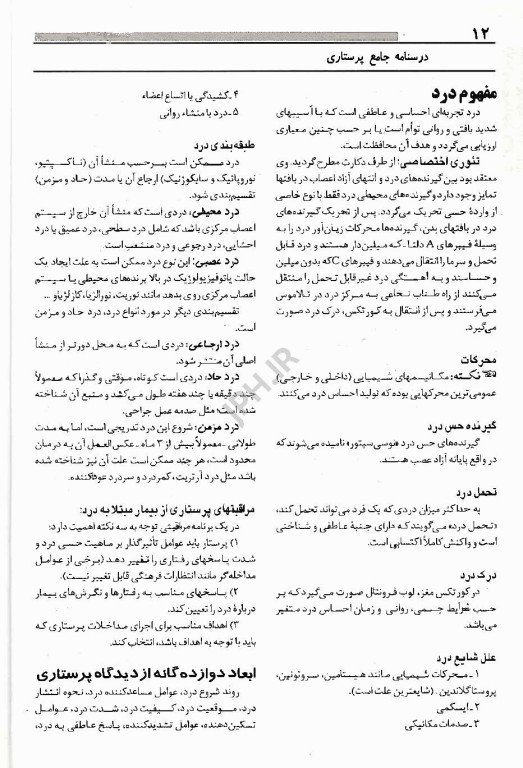 ۱۲
درسنامه جامع پرستاری
مفهوم درد
درد تجربه‌ای احساسی و عاطفی است که با آسیبهای
شدید بافتی و روانی توأم است یا بر حسب چنین معیاری
ارزیابی می‌گردد و هدف آن محافظت است.
تئوری اختصاصی: از طرف دکارت مطرح گردید. وی
معتقد بود بین گیرنده‌های درد و انتهای آزاد اعصاب در بافتها
تمایز وجود دارد و گیرنده‌های محیطی درد فقط با نوع خاصی
از واردهٔ حسی تحریک می‌گردد. پس از تحریک گیرنده‌های
درد در بافتهای بدن، گیرنده‌ها محرکات زیان‌آور درد را به
وسیلهٔ فیبرهای A دلتا ـ که میلین‌دار هستند و درد قابل
تحمل و سرما را انتقال می‌دهند و فیبرهای C که بدون میلین
و حساسند و به آهستگی درد غیرقابل تحمل را منتقل
می‌کنند از راه طناب نخاعی به مرکز درد در تالاموس
می‌فرستند و پس از انتقال به کورتکس، درک درد صورت
می‌گیرد.
محرکات
نکته: مکانیسمهای شیمیایی (داخلی و خارجی)
عمومی‌ترین محرکهایی بوده که تولید احساس درد می‌کنند.
گیرنده حس درد
گیرنده‌های حس درد «نوسی‌سپتور» نامیده می‌شوند که
در واقع پایانه آزاد عصب هستند.
تحمل درد
به حداکثر میزان دردی که یک فرد می‌تواند تحمل کند،
«تحمل درد» می‌گویند که دارای جنبهٔ عاطفی و شناختی
است و واکنش کاملاً اکتسابی است.
درک درد
در کورتکس مغز، لوب فرونتال صورت می‌گیرد که بر
حسب شرایط جسمی، روانی و زمان احساس درد متغیر
می‌باشد.
علل شایع درد
۱ ـ محرکات شیمیایی مانند هیستامین، سروتونین،
پروستاگلاندین. (شایعترین علت است).
۲ ـ ایسکمی
۳ ـ صدمات مکانیکی
۴ ـ کشیدگی یا اتساع اعضاء
۵ ـ درد با منشاء روانی
طبقه‌بندی درد
درد ممکن است برحسب منشأ آن (ناکسپتیو،
نوروپاتیک و سایکوژنیک) ارجاع آن یا مدت (حاد و مزمن)
تقسیم‌بندی شود.
درد محیطی: دردی است که منشأ آن خارج از سیستم
اعصاب مرکزی باشد که شامل درد سطحی، درد عمیق یا درد
احشایی، درد رجوعی و درد منشعب است.
درد عصبی: این نوع درد ممکن است به علت ایجاد یک
حالت پاتوفیزیولوژیک در بالا برنده‌های محیطی یا سیستم
اعصاب مرکزی روی بدهد. مانند نوریت، نورالژیا، کازلژیاو ...
تقسیم‌بندی دیگر در مورد انواع درد، درد حاد و مزمن
است.
درد ارجاعی: دردی است که به محل دورتر از منشأ
اصلی آن منتشر شود.
درد حاد: دردی است کوتاه، موقتی و گذرا که معمولاً
چند دقیقه یا چند هفته طول می‌کشد و منبع آن شناخته
شده است؛ مثل صدمه عمل جراحی.
درد مزمن: شروع این درد تدریجی است، اما به مدت
طولانی ـ معمولاً بیش از ۳ ماه ـ عکس‌العمل آن به درمان
محدود است، هر چند ممکن است علت آن نیز شناخته شده
باشد مثل درد آرتریت، کمردرد و سردرد عودکننده.
مراقبتهای پرستاری از بیمار مبتلا به درد:
در یک برنامه مراقبتی توجه به سه نکته اهمیت دارد:
۱) پرستار باید عوامل تأثیرگذار بر ماهیت حسی درد و
شدت پاسخهای رفتاری را تغییر دهد (برخی از عوامل
مداخله‌گر مانند انتظارات فرهنگی قابل تغییر نیست).
۲) پاسخهای مناسب به رفتارها و نگرش‌های بیمار
دربارهٔ درد را تعیین کند.
۳) اهداف مناسب برای اجرای مداخلات پرستاری که
باید با توجه به اهداف باشد، انتخاب کند.
ابعاد دوازده‌گانه از دیدگاه پرستاری
روند شروع درد، عوامل مساعدکننده درد، نحوه انتشار
درد، موقعیت درد، کیفیت درد، شدت درد، عوامل
تسکین‌دهنده، عوامل تشدیدکننده، پاسخ عاطفی به درد،
JPH.IR